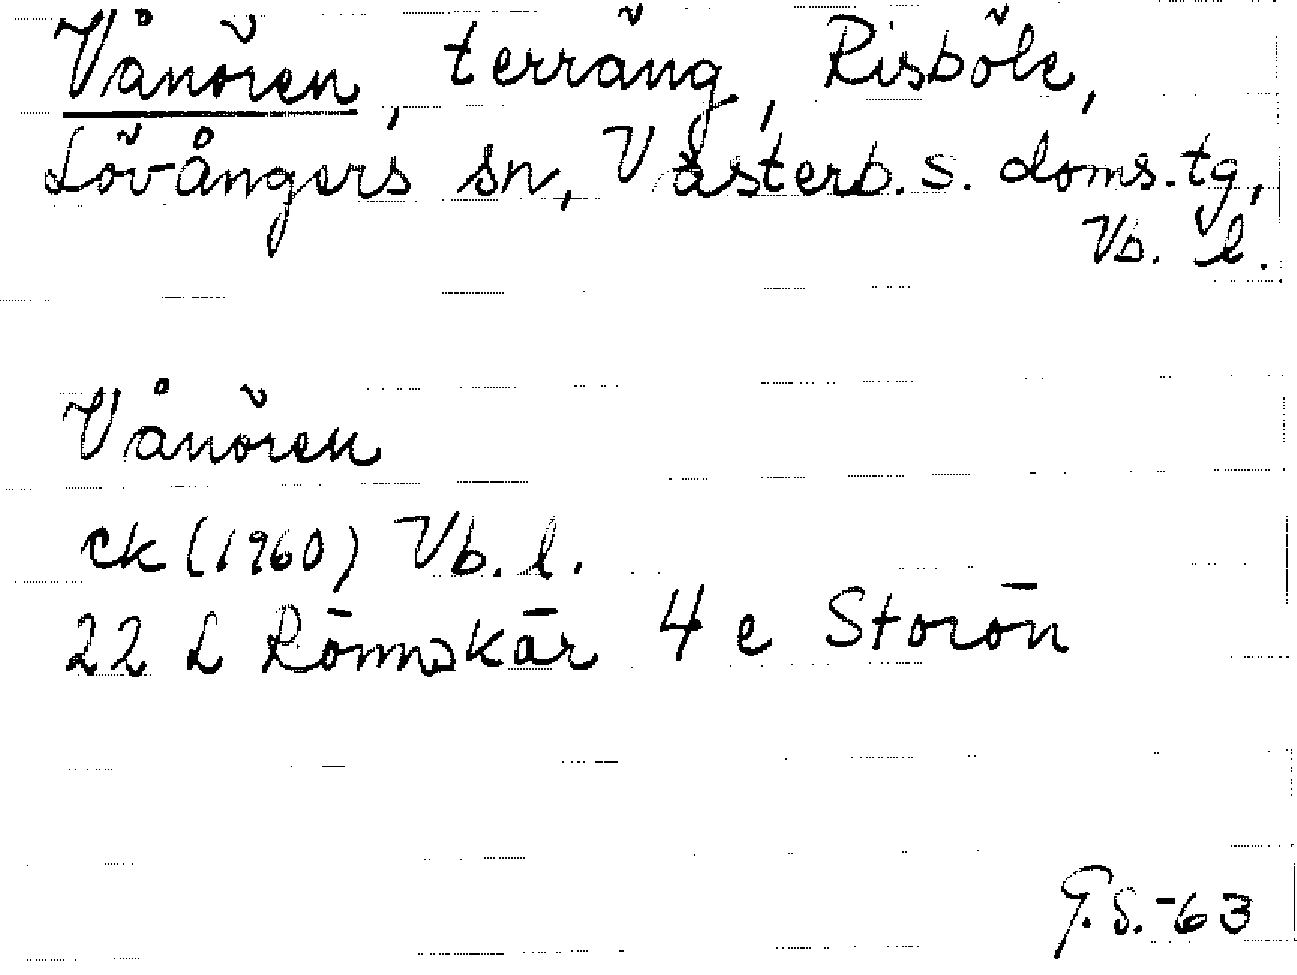 Vånören, terräng, Risböle,
Lövångers sn, Västerb. s. doms. tg,
Vb. l.
Vånören
ek (1960) Vb. l.
22 L Rönnskär 4 e Storön
G. S. -63